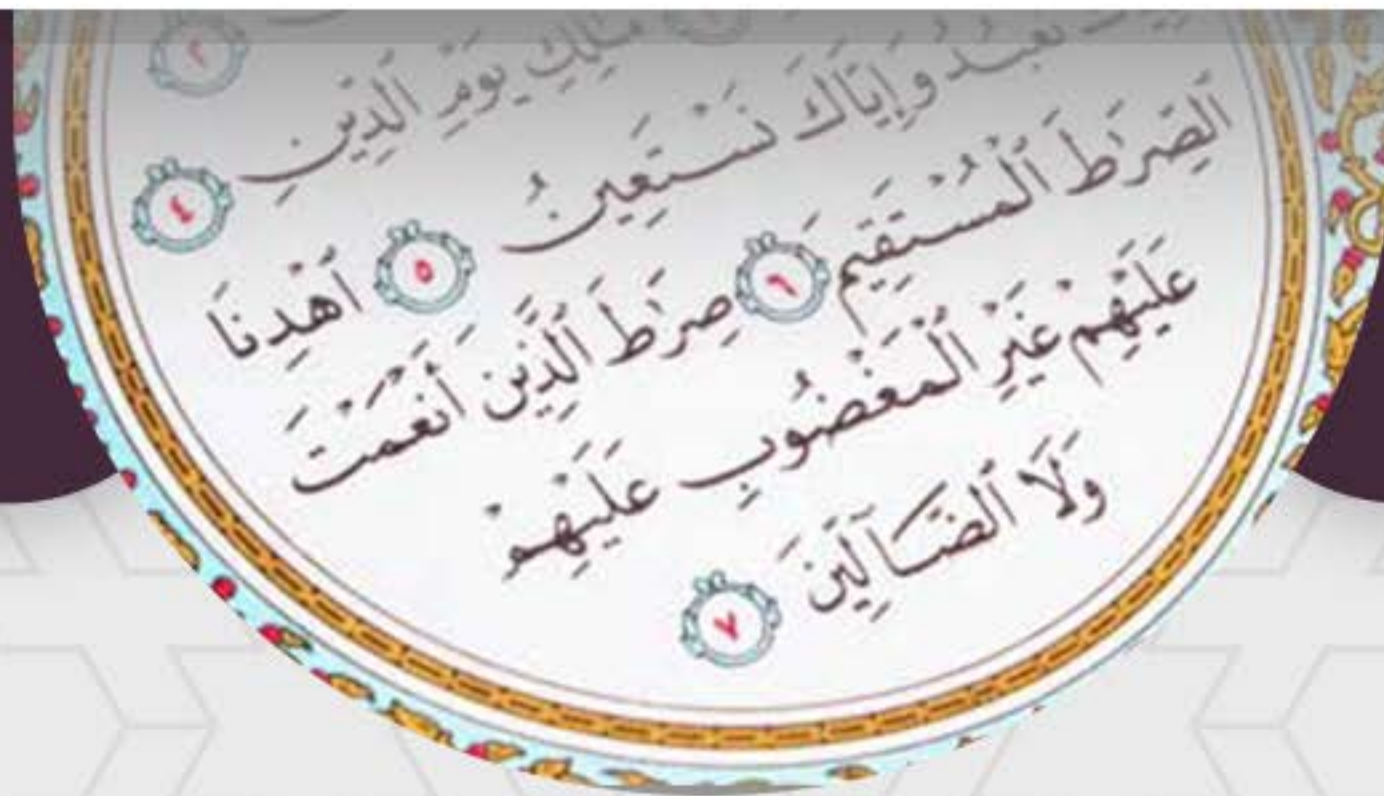 ٢
مَـٰلِكِ يَوْمِ ٱلدِّينِ ٤
نَعْبُدُ وَإِيَّاكَ نَسْتَعِينُ ٥ ٱهْدِنَا
ٱلصِّرَٰطَ ٱلْمُسْتَقِيمَ ٦ صِرَٰطَ ٱلَّذِينَ أَنْعَمْتَ
عَلَيْهِمْ غَيْرِ ٱلْمَغْضُوبِ عَلَيْهِمْ
وَلَا ٱلضَّآلِّينَ ٧